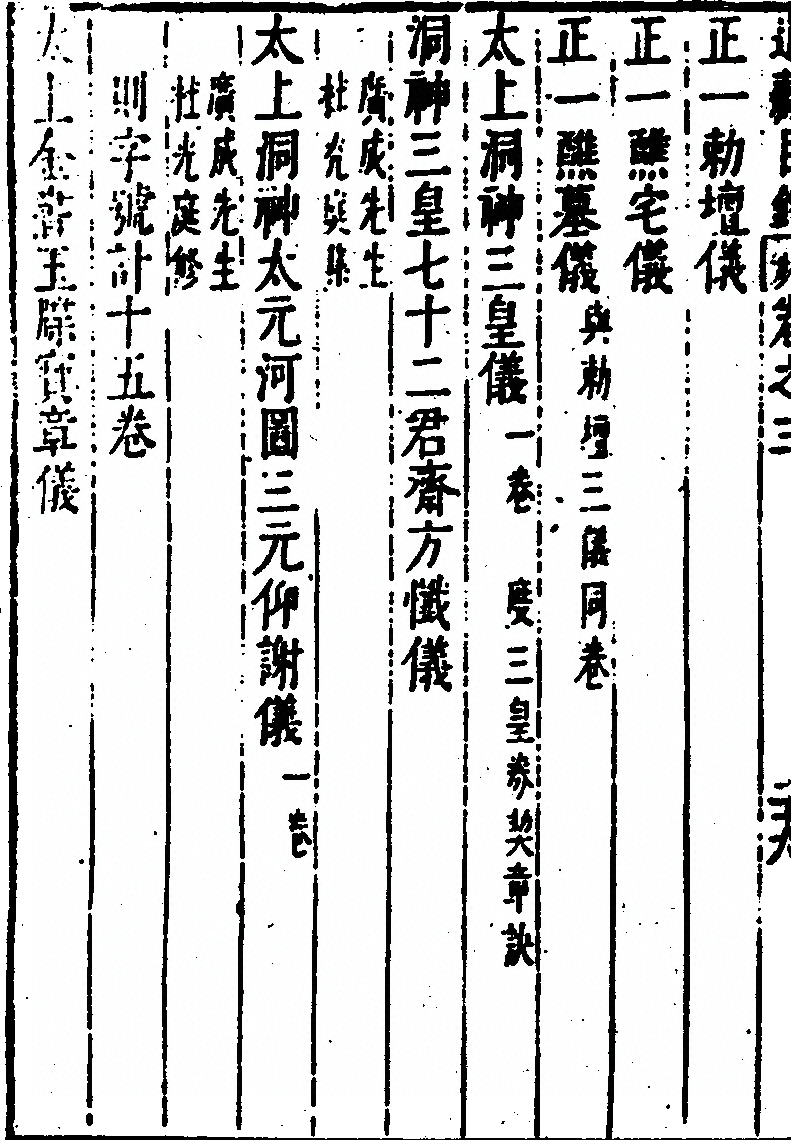 道藏目錄卷之三
正一勅壇儀
正一醮宅儀
正一醮墓儀 與勅壇三儀同卷
太上洞神三皇儀 一卷 度三皇券契章訣
洞神三皇七十二君齋方懺儀
廣成先生
杜光庭集
太上洞神太元河圖三元仰謝儀 一卷
廣成先生
杜光庭修
則字號計十五卷
太上金書玉牒寶章儀